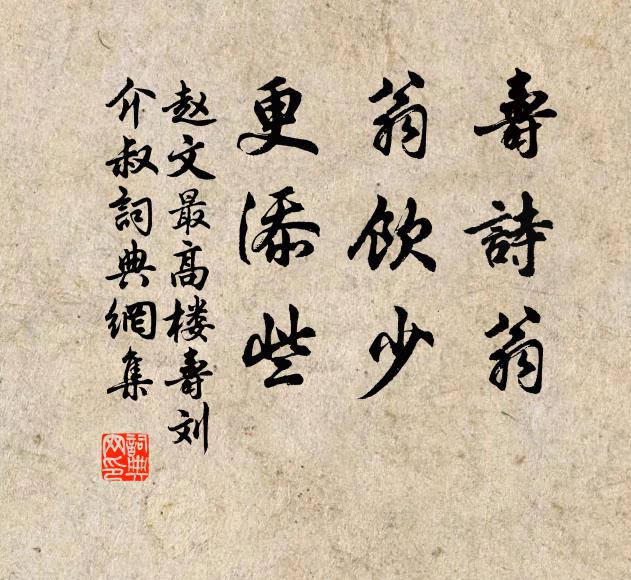 壽詩翁
翁飲少
更添些
赵文最高楼壽刘
介叔詞典網集
詞典
网印